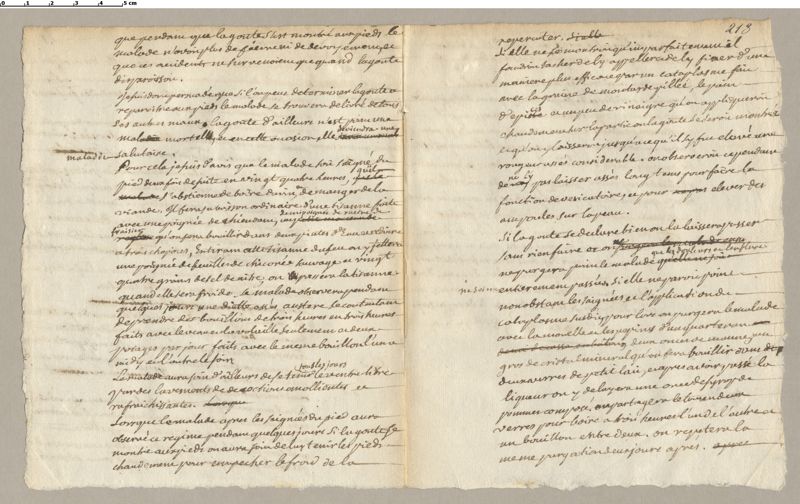 0 1 2 3 4 5 cm
que pendant que la goute s'est montré aux pieds le
malade n'avoit plus de
que ces accidents ne survenoient que quand la goute
disparoissoit.
Je suis donc persuadé que si l'on peut determiner la goute a
reparoitre aux pieds le malade se trouvera delivré de tous
ses autres maux. la goute d'ailleurs n'est pas une
maladie mortelle, en cette occasion elle deviendra une
maladie salutaire.
Pour cela je suis d'avis que le malade soit saigné du
pied deux fois de suite en vingt quatre heures, qu'il
s'abstienne de boire du vin, de manger de la
viande. Il fera sa boisson ordinaire d'une tisanne faite
avec une poignée de chiendent, une poignée de racine de
fraisier qu'on fera bouillir dans deux pintes d'eau
a trois chopines, En tirant cette tisanne du feu on y jettera
une poignée de feuilles de chicorée sauvage et vingt
quatre grains de sel de nitre, on passera la tisanne
quand elle sera froide. le malade observera pendant
quelques jours une diette assés austere se contentant
de prendre des bouillons de trois heures en trois heures
faits avec le veau et la volaille seulement ou deux
potages par jour faits avec le meme bouillon l'un a
midy et l'autre le soir
Le malade aura soin d'ailleurs de se tenir tous les jours le ventre libre
par des lavements de decoctions emollientes et
rafraichissantes.
Lorsque le malade apres les saignées du pied aura
observé ce regime pendant quelques jours si la goute se
montre aux pieds on aura soin de luy tenir les pieds
chaudement pour empecher le froid de la
213
repercuter.
Si elle ne se montroit qu'imparfaitement il
faudra tacher de l'y appeller et de l'y fixer d'une
maniere plus efficace par un cataplasme fait
avec la graine de moutarde pillée, le pain
d'epice et un peu de vinaigre qu'on appliquera
chaudement sur la partie ou la goute se seroit montrée
et qu'on y laissera jusqu'a ce qu'il s'y fut elevé une
rougeur assés considerable. on observera cependant
de ne l'y pas laisser assés longtems pour faire la
fonction de vesicatoire, et pour elever des
ampoules sur la peau.
Si la goute se declare bien on la laissera passer
sans rien faire et on
ne purgera point le malade que les douleurs et l'enflure
entierement passés. Si elle ne paroit point
nonobstant les saignées et l'application du
cataplasme susdit pour lors on purgera le malade
avec la moelle et les pepins d'un quarteron
deux onces de manne, un
gros de cristal mineral qu'on fera bouillir dans
deux verres de petit lait, et apres avoir passé la
liqueur on y delayera une once de syrop de
pommes composé, on partagera le tout en deux
verres pour boire a trois heures l'un de l'autre et
un bouillon entre deux. on repetera la
meme purgation deux jours apres.